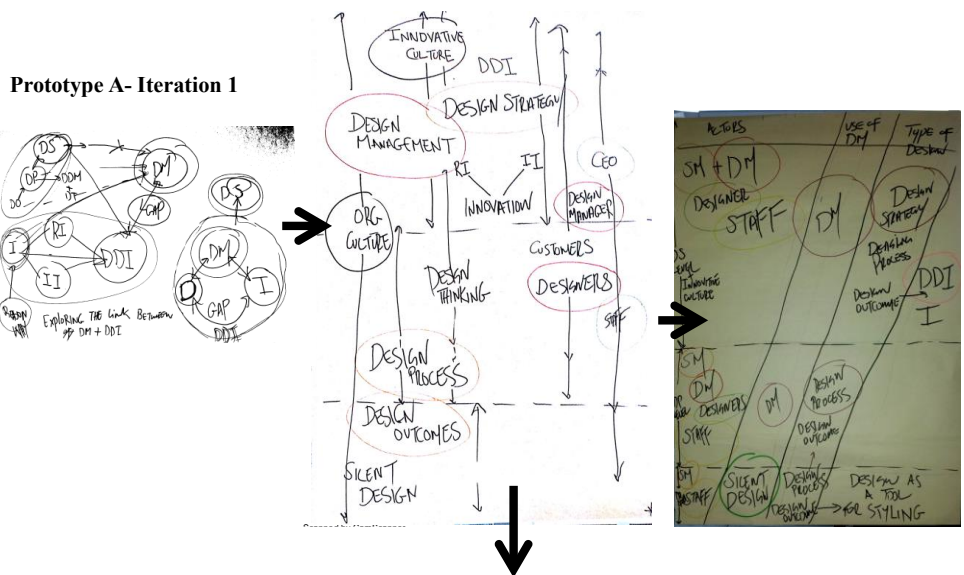 Prototype A- Iteration 1
DS
DP
DO
DDM
DM
GAP
RI
I
DDI
II
EXPLORING THE LINK BETWEEN
OF DM + DDI
DS
DM
D
I
GAP
DDI
INNOVATIVE
CULTURE
DDI
DESIGN STRATEGY
DESIGN
MANAGEMENT
RI
II
INNOVATION
CEO
DESIGN
MANAGER
ORG
CULTURE
CUSTOMERS
DESIGN
THINKING
DESIGNERS
STAFF
DESIGN
PROCESS
DESIGN
OUTCOMES
SILENT
DESIGN
ACTORS
USE OF
DM
TYPE OF
DESIGN
SM + DM
DESIGNER
STAFF
DM
DESIGN
STRATEGY
DESIGNING
PROCESS
INNOVATIVE
CULTURE
DESIGN
OUTCOME
DDI
I
SM
DM
DESIGNERS
STAFF
DM
DESIGN
PROCESS
DESIGN
OUTCOME
SM
STAFF
SILENT
DESIGN
DESIGN
PROCESS
DESIGN
OUTCOME
DESIGN AS
A TOOL
FOR STYLING